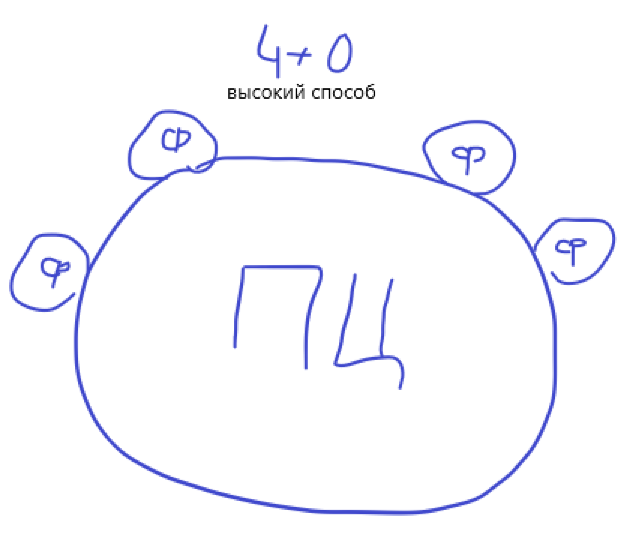 4+0
высокий способ
Ф Ф
Ф Ф
ПЦ